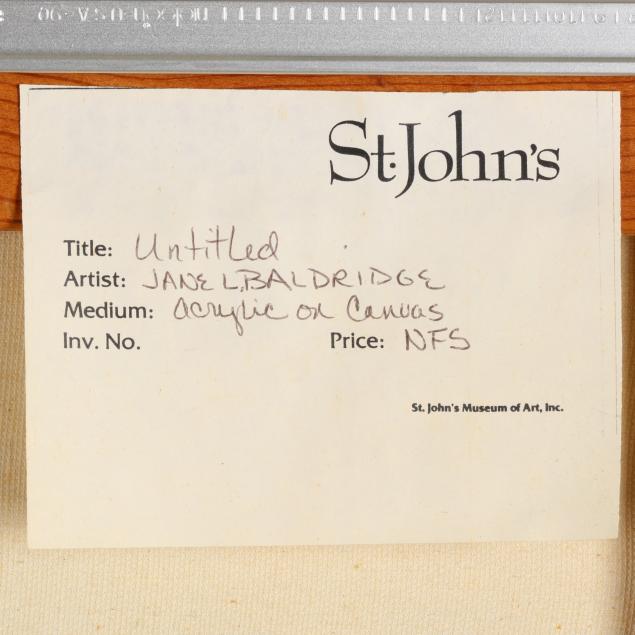 St. John's
Title: Untitled
Artist: JANE L. BALDRIDGE
Medium: Acrylic on Canvas
Inv. No. Price: NFS
St. John's Museum of Art, Inc.